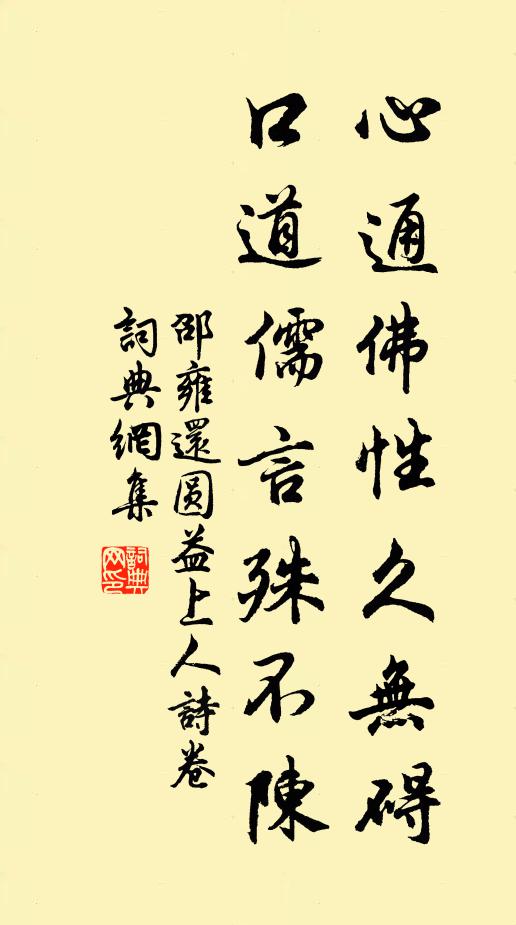 心通佛性久無碍
口道儒言殊不陳
邵雍還圓益上人詩卷
詞典網集
詞典网印